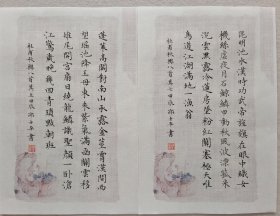 昆明池水漢時功武帝旌旗在眼中織女
機絲虛夜月石鯨鱗甲動秋風波漂菰米
沈雲黑露冷蓮房墜粉紅關塞極天唯
鳥道江湖滿地一漁翁
杜甫秋興八首其七甲辰書
蓬萊高闕對南山承露金莖霄漢間西
望瑤池降王母東來紫氣滿函關雲移
雉尾開宮扇日繞龍鱗識聖顏一卧滄
江驚歲晚幾回青瑣點朝班
杜甫秋興八首其五甲辰書